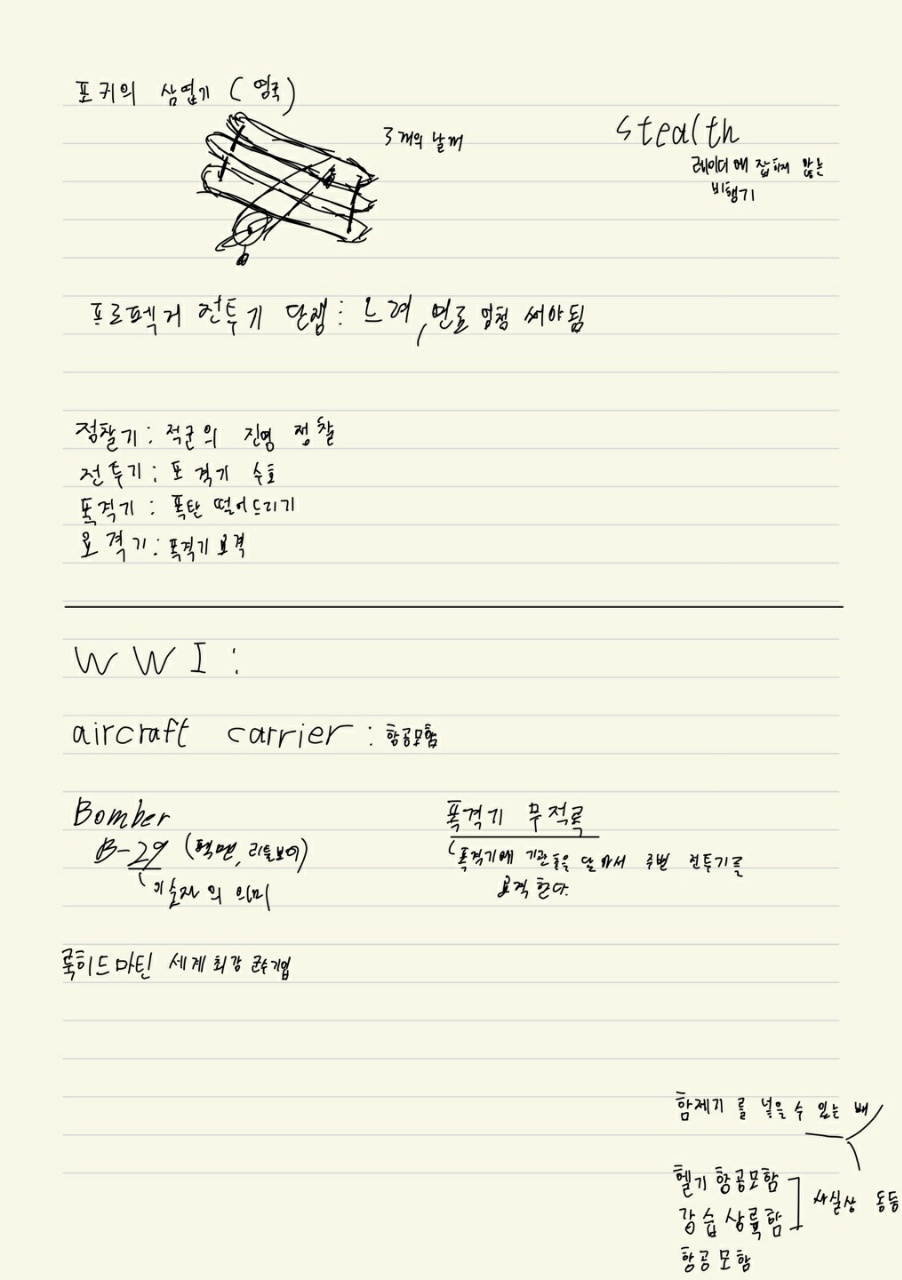 포커의 삼엽기 (영국)
3개의 날개
Stealth
레이더에 잡히지 않는
비행기
프로펠러 전투기 단점: 느려, 연료 엄청 써야됨
정찰기: 적군의 진영 정찰
전투기: 폭격기 수호
폭격기: 폭탄 떨어드리기
요격기: 폭격기 요격
WWI:
aircraft carrier: 항공모함
Bomber
B-29 (팻맨, 리틀보이)
의 의미
폭격기 무적론
(폭격기에 기관총을 달아서 주변 전투기를
요격한다.
록히드마틴 세계 최강 군수기업
함제기를 넣을 수 있는 배
헬기 항공모함
강습 상륙함
사실상 동등
항공모함